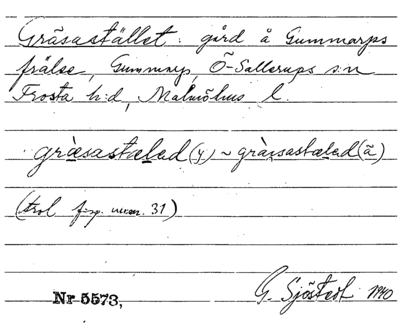 Gräsastället: gård å Gummarps
frälse, Gummarp, Ö-Sallerups sn
Frosta hd, Malmöhus l.
gràsastæled (y) ~ gràsastæled (ä)
(trol
31)
Nr 5573,
G. Sjöstedt 1940